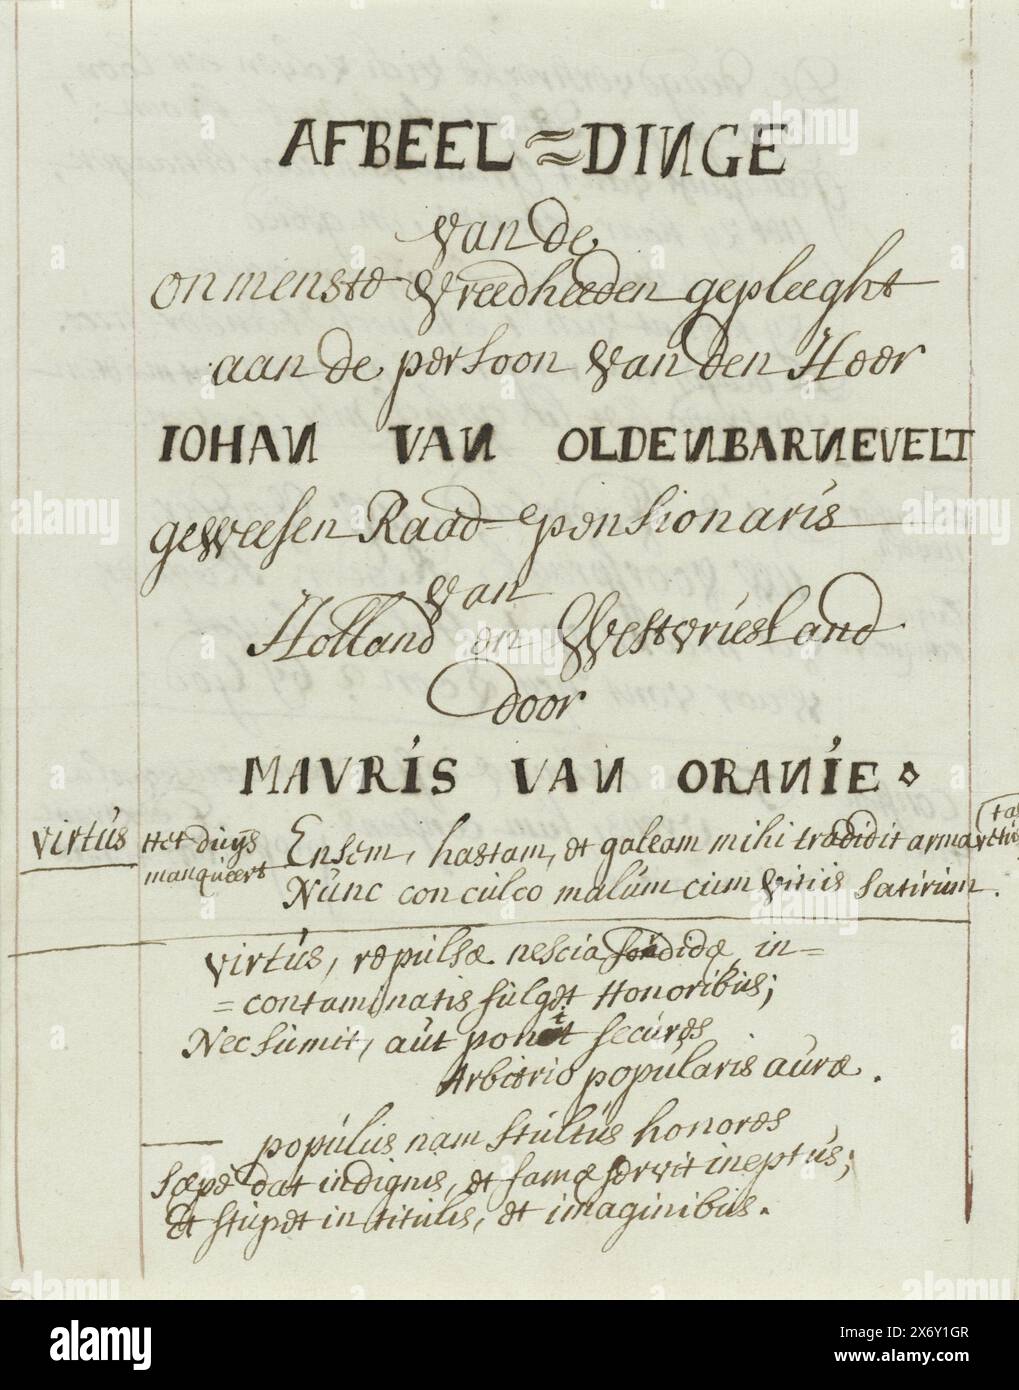 AFBEEL=DINGE
van de
onmenste Vreedheeden gepleeght
aan de persoon van den Heer
IOHAN VAN OLDENBARNEVELT
geweesen Raad-pensionaris
van
Holland en Westvriesland
door
MAVRIS VAN ORANIE
virtús Het duÿs Ensem, hastam, et galeam mihi tradidit arma
manqúeert Núnc conculco malúm cum vitiis satirúm.
virtús, repúlsæ nescia sordidæ in=
=contaminatis fúlget Honoribus;
Nec súmit, aút ponit secúres
Arbitrio popúlaris auræ.
popúlus nam stúltús honores
sæpe dat indignis, et famæ servit ineptús;
Et stúpet in titulis, et imaginibús.
alamy
Image ID: 2X6Y1GR
www.alamy.com